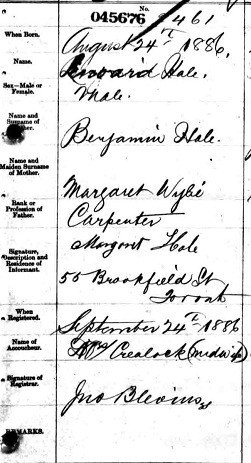 No.
045676 461
When Born. August 24th 1886,
Name. Edward Hale,
Sex—Male or Female. Male.
Name and Surname of Father. Benjamin Hale.
Name and Maiden Surname of Mother. Margaret Wylie
Rank or Profession of Father. Carpenter
Signature, Description and Residence of Informant. Margaret Hale
55 Brookfield St
Toronto
When Registered. September 24th 1886
Name of Accoucheur. Mrs Crealock (midwife)
Signature of Registrar. Jno Blevins
REMARKS.